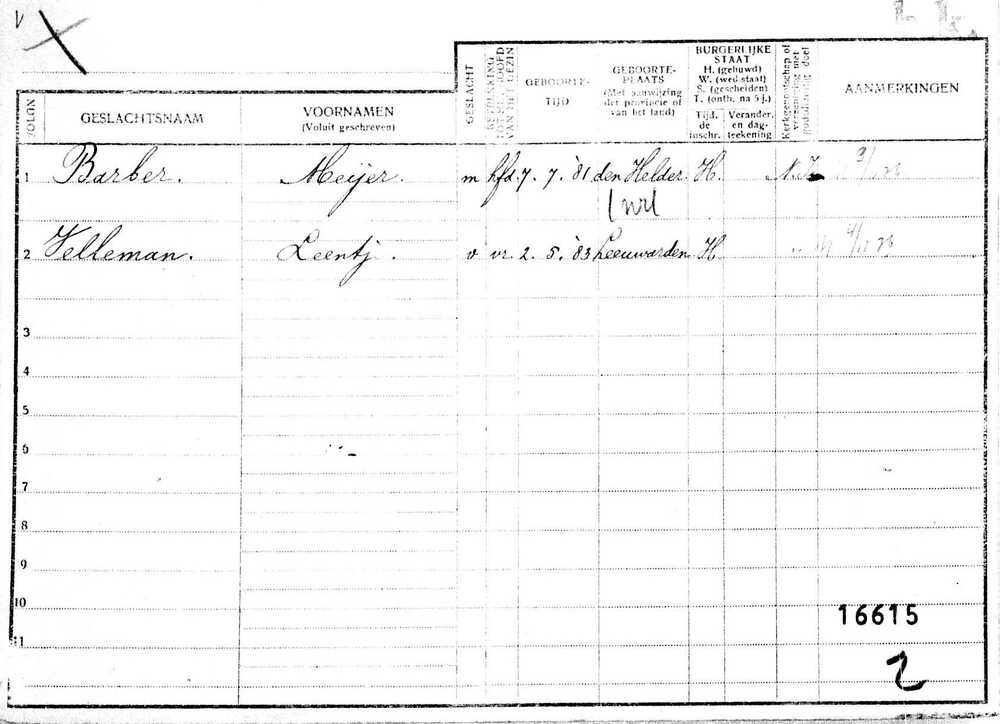 BURGERLIJKE STAAT
H. (gehuwd)
W. (wed. staat)
S. (gescheiden)
T. (onth. na 5 j.)
VOLGN
GESLACHTSNAAM
VOORNAMEN
(Voluit geschreven)
GESLACHT
BETREKKING TOT HET HOOFD VAN HET GEZIN
GEBOORTE-
TIJD
GEBOORTE-
PLAATS
(Met aanwijzing
der provincie of
van het land)
Tijd.
de
inschr.
Verander.
en dag-
teekening
Kerkgenootschap of vereeniging met godsdienstig doel
AANMERKINGEN
1 Barber. Meijer. m hfd. 7. 7. '81 den Helder. H. N.I.
2 Velleman. Leentj. v vr. 2. 5. '83 Leeuwarden H. "
3
4
5
6
7
8
9
10
11
16615
2